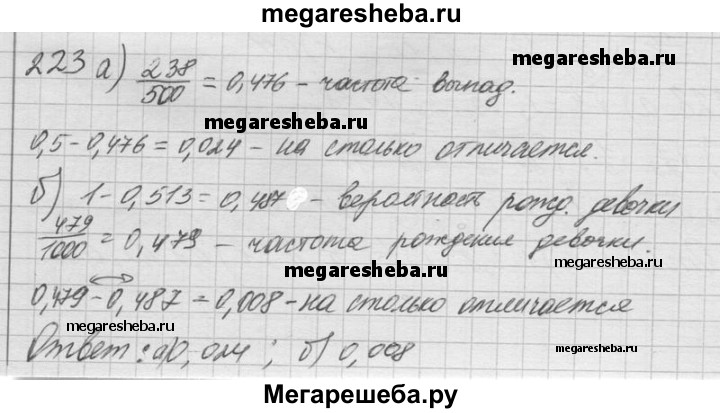 megaresheba.ru
223 а) 238/500 = 0,476 – частота выпад.
megaresheba.ru
megaresheba.ru
0,5 – 0,476 = 0,024 – на столько отличается.
б) 1 – 0,513 = 0,487 – вероятность рожд. девочки
479/1000 = 0,479 – частота рождения девочки.
megaresheba.ru
0,479 – 0,487 = 0,008 – на столько отличается
megaresheba.ru
Ответ: а) 0,024; б) 0,008
megaresheba.ru
Мегарешеба.ру